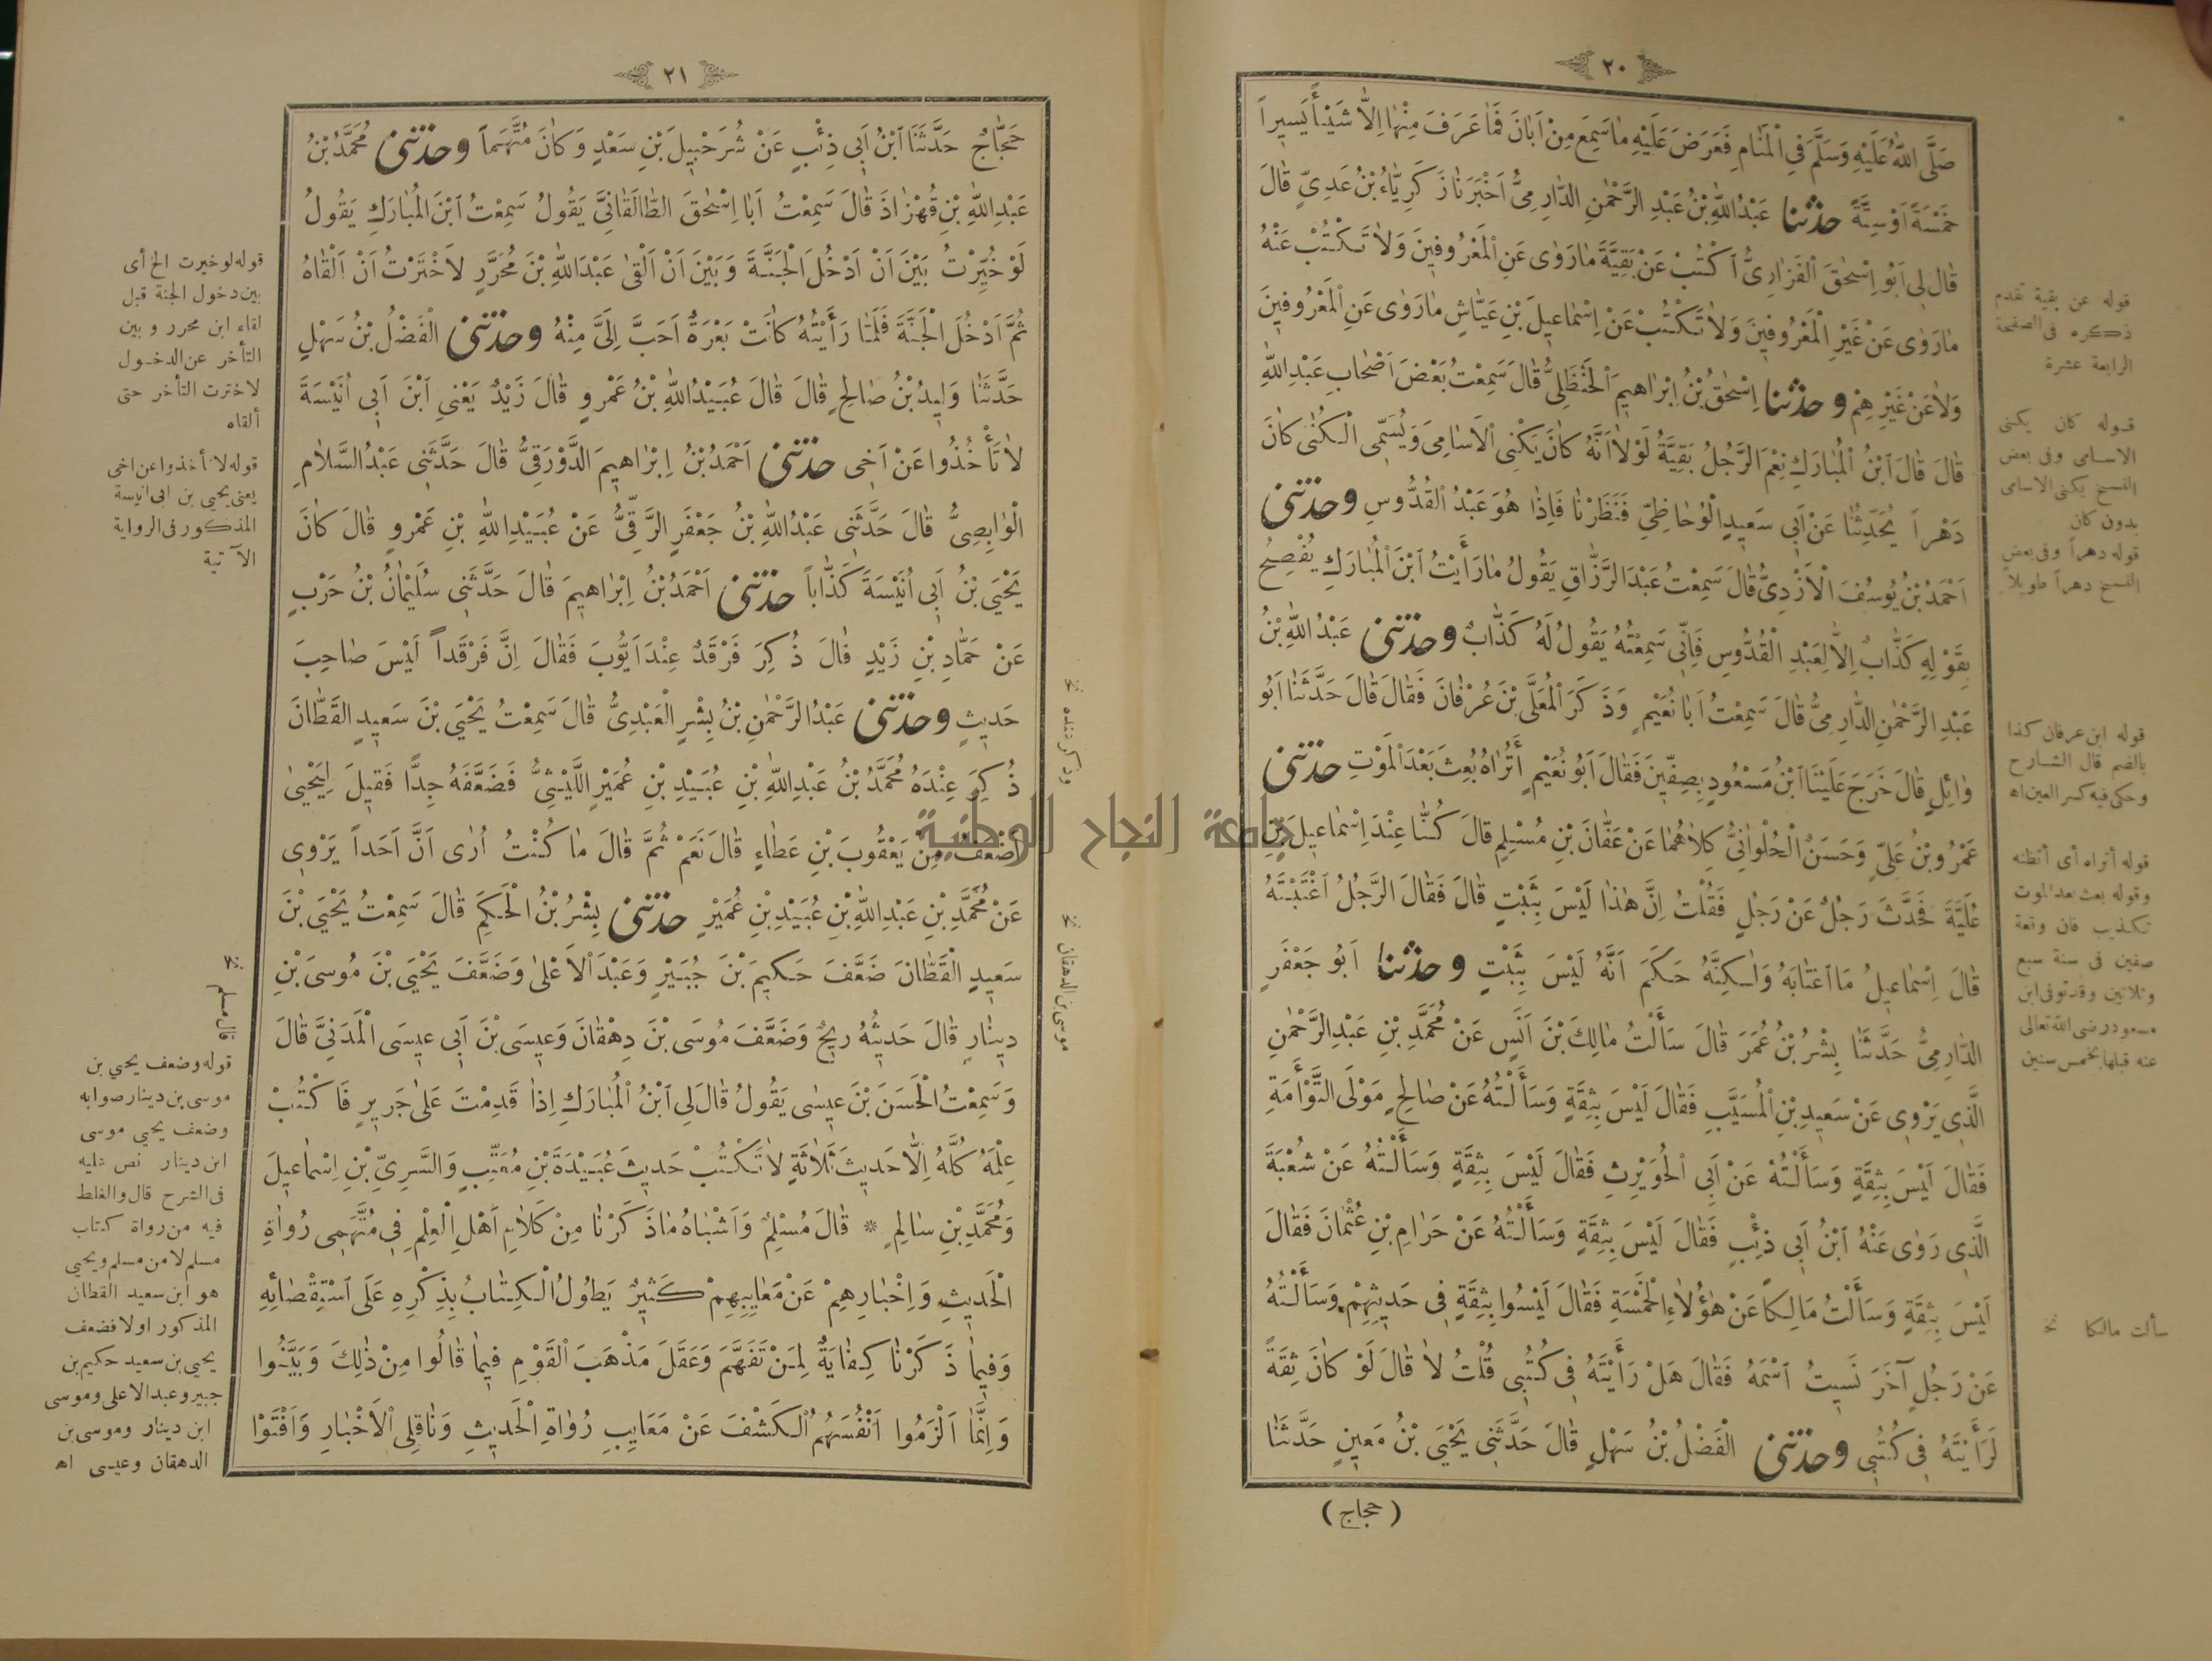 ٢٠
صَلَّى اللهُ عَلَيْهِ وَسَلَّمَ فِي الْمَنَامِ فَعَرَضَ عَلَيْهِ مَا سَمِعَ مِنْ اَبَانَ فَمَا عَرَفَ مِنْهَا اِلَّا شَيْئاً يَسِيراً
خَمْسَةً اَوْسِتَّةً حدثنا عَبْدُاللهِ بْنُ عَبْدِ الرَّحْمٰنِ الدَّارِمِىُّ اَخْبَرَنَا زَكَرِيَّاءُ بْنُ عَدِىٍّ قَالَ
قَالَ لِى اَبُو اِسْحٰقَ الْفَزَارِىُّ اَكْتُبْ عَنْ بَقِيَّةَ مَا رَوٰى عَنِ الْمَعْرُوفِينَ وَلَا تَكْتُبْ عَنْهُ
مَا رَوٰى عَنْ غَيْرِ الْمَعْرُوفِينَ وَلَا تَكْتُبْ عَنْ اِسْمَاعِيلَ بْنِ عَيَّاشٍ مَا رَوٰى عَنِ الْمَعْرُوفِينَ
وَلَا عَنْ غَيْرِهِمْ وحدثنا اِسْحٰقُ بْنُ اِبْرَاهِيمَ الْحَنْظَلِىُّ قَالَ سَمِعْتُ بَعْضَ اَصْحَابِ عَبْدِ اللهِ
قَالَ قَالَ ابْنُ الْمُبَارَكِ نِعْمَ الرَّجُلُ بَقِيَّةُ لَوْلَا اَنَّهُ كَانَ يَكْنِى الْاَسَامِىَ وَيُسَمِّى الْكُنٰى كَانَ
دَهْراً يُحَدِّثُنَا عَنْ اَبِى سَعِيدٍ الْوُحَاظِىِّ فَنَظَرْنَا فَاِذَا هُوَ عَبْدُ الْقُدُّوسِ وحدثنى
اَحْمَدُ بْنُ يُوسُفَ الْاَزْدِىُّ قَالَ سَمِعْتُ عَبْدَ الرَّزَّاقِ يَقُولُ مَا رَأَيْتُ ابْنَ الْمُبَارَكِ يُفْصِحُ
بِقَوْلِهِ كَذَّابٌ اِلَّا لِعَبْدِ الْقُدُّوسِ فَاِنِّى سَمِعْتُهُ يَقُولُ لَهُ كَذَّابٌ وحدثنى عَبْدُ اللهِ بْنُ
عَبْدِ الرَّحْمٰنِ الدَّارِمِىُّ قَالَ سَمِعْتُ اَبَا نُعَيْمٍ وَذَكَرَ الْمُعَلَّى بْنَ عُرْفَانَ فَقَالَ قَالَ حَدَّثَنَا اَبُو
وَائِلٍ قَالَ خَرَجَ عَلَيْنَا ابْنُ مَسْعُودٍ بِصِفِّينَ فَقَالَ اَبُو نُعَيْمٍ أَتُرَاهُ بُعِثَ بَعْدَ الْمَوْتِ حدثنى
عَمْرُو بْنُ عَلِىٍّ وَحَسَنٌ الْحُلْوَانِىُّ كِلَاهُمَا عَنْ عَفَّانَ بْنِ مُسْلِمٍ قَالَ كُنَّا عِنْدَ اِسْمَاعِيلَ بْنِ
عُلَيَّةَ فَحَدَّثَ رَجُلٌ عَنْ رَجُلٍ فَقُلْتُ اِنَّ هٰذَا لَيْسَ بِثَبْتٍ قَالَ فَقَالَ الرَّجُلُ اغْتَبْتَهُ
قَالَ اِسْمَاعِيلُ مَا اغْتَابَهُ وَلٰكِنَّهُ حَكَمَ اَنَّهُ لَيْسَ بِثَبْتٍ وحدثنا اَبُو جَعْفَرٍ
الدَّارِمِىُّ حَدَّثَنَا بِشْرُ بْنُ عُمَرَ قَالَ سَأَلْتُ مَالِكَ بْنَ اَنَسٍ عَنْ مُحَمَّدِ بْنِ عَبْدِ الرَّحْمٰنِ
الَّذِى يَرْوِى عَنْ سَعِيدِ بْنِ الْمُسَيَّبِ فَقَالَ لَيْسَ بِثِقَةٍ وَسَأَلْتُهُ عَنْ صَالِحٍ مَوْلَى التَّوْأَمَةِ
فَقَالَ لَيْسَ بِثِقَةٍ وَسَأَلْتُهُ عَنْ اَبِى الْحُوَيْرِثِ فَقَالَ لَيْسَ بِثِقَةٍ وَسَأَلْتُهُ عَنْ شُعْبَةَ
الَّذِى رَوٰى عَنْهُ ابْنُ اَبِى ذِئْبٍ فَقَالَ لَيْسَ بِثِقَةٍ وَسَأَلْتُهُ عَنْ حَرَامِ بْنِ عُثْمَانَ فَقَالَ
لَيْسَ بِثِقَةٍ وَسَأَلْتُ مَالِكاً عَنْ هٰؤُلَاءِ الْخَمْسَةِ فَقَالَ لَيْسُوا بِثِقَةٍ فِى حَدِيثِهِمْ وَسَأَلْتُهُ
عَنْ رَجُلٍ آخَرَ نَسِيتُ اسْمَهُ فَقَالَ هَلْ رَأَيْتَهُ فِى كُتُبِى قُلْتُ لَا قَالَ لَوْ كَانَ ثِقَةً
لَرَأَيْتَهُ فِى كُتُبِى وحدثنى الْفَضْلُ بْنُ سَهْلٍ قَالَ حَدَّثَنِى يَحْيَى بْنُ مَعِينٍ حَدَّثَنَا
( حجاج )
قوله عن بقية تقدم
ذكره فى الصفحة
الرابعة عشرة
قوله كان يكنى
الاسامى وفى بعض
النسخ يكنى الاسامى
بدون كان
قوله دهراً وفى بعض
النسخ دهراً طويلاً
قوله ابن عرفان كذا
بالضم قال الشارح
وحكى فيه كسر العين اه
قوله أتراه أى أتظنه
وقوله بعث بعد الموت
تكذيب فان وقعة
صفين فى سنة سبع
وثلاثين وقد توفى ابن
مسعود رضى الله تعالى
عنه قبلها بخمس سنين
سألت مالكا نخ
٢١
حَجَّاجٌ حَدَّثَنَا ابْنُ اَبِى ذِئْبٍ عَنْ شُرَحْبِيلَ بْنِ سَعْدٍ وَكَانَ مُتَّهَماً وحدثنى مُحَمَّدُ بْنُ
عَبْدِ اللهِ بْنِ قُهْزَاذَ قَالَ سَمِعْتُ اَبَا اِسْحٰقَ الطَّالَقَانِىَّ يَقُولُ سَمِعْتُ ابْنَ الْمُبَارَكِ يَقُولُ
لَوْ خُيِّرْتُ بَيْنَ اَنْ اَدْخُلَ الْجَنَّةَ وَبَيْنَ اَنْ اَلْقٰى عَبْدَ اللهِ بْنَ مُحَرَّرٍ لَاخْتَرْتُ اَنْ اَلْقَاهُ
ثُمَّ اَدْخُلَ الْجَنَّةَ فَلَمَّا رَأَيْتُهُ كَانَتْ بَعْرَةٌ اَحَبَّ اِلَىَّ مِنْهُ وحدثنى الْفَضْلُ بْنُ سَهْلٍ
حَدَّثَنَا وَلِيدُ بْنُ صَالِحٍ قَالَ قَالَ عُبَيْدُ اللهِ بْنُ عَمْرٍو قَالَ زَيْدٌ يَعْنِى ابْنَ اَبِى اُنَيْسَةَ
لَا تَأْخُذُوا عَنْ اَخِى حدثنى اَحْمَدُ بْنُ اِبْرَاهِيمَ الدَّوْرَقِىُّ قَالَ حَدَّثَنِى عَبْدُ السَّلَامِ
الْوَابِصِىُّ قَالَ حَدَّثَنِى عَبْدُ اللهِ بْنُ جَعْفَرٍ الرَّقِّىُّ عَنْ عُبَيْدِ اللهِ بْنِ عَمْرٍو قَالَ كَانَ
يَحْيَى بْنُ اَبِى اُنَيْسَةَ كَذَّاباً حدثنى اَحْمَدُ بْنُ اِبْرَاهِيمَ قَالَ حَدَّثَنِى سُلَيْمَانُ بْنُ حَرْبٍ
عَنْ حَمَّادِ بْنِ زَيْدٍ قَالَ ذُكِرَ فَرْقَدٌ عِنْدَ اَيُّوبَ فَقَالَ اِنَّ فَرْقَداً لَيْسَ صَاحِبَ
حَدِيثٍ وحدثنى عَبْدُ الرَّحْمٰنِ بْنُ بِشْرٍ الْعَبْدِىُّ قَالَ سَمِعْتُ يَحْيَى بْنَ سَعِيدٍ الْقَطَّانَ
ذُكِرَ عِنْدَهُ مُحَمَّدُ بْنُ عَبْدِ اللهِ بْنِ عُبَيْدِ بْنِ عُمَيْرٍ اللَّيْثِىُّ فَضَعَّفَهُ جِدًّا فَقِيلَ لِيَحْيٰى
اَضْعَفُ مِنْ يَعْقُوبَ بْنِ عَطَاءٍ قَالَ نَعَمْ ثُمَّ قَالَ مَا كُنْتُ اُرٰى اَنَّ اَحَداً يَرْوِى
عَنْ مُحَمَّدِ بْنِ عَبْدِ اللهِ بْنِ عُبَيْدِ بْنِ عُمَيْرٍ حدثنى بِشْرُ بْنُ الْحَكَمِ قَالَ سَمِعْتُ يَحْيَى بْنَ
سَعِيدٍ الْقَطَّانَ ضَعَّفَ حَكِيمَ بْنَ جُبَيْرٍ وَعَبْدَ الْاَعْلٰى وَضَعَّفَ يَحْيَى بْنَ مُوسَى بْنِ
دِينَارٍ قَالَ حَدِيثُهُ رِيحٌ وَضَعَّفَ مُوسَى بْنَ دِهْقَانَ وَعِيسَى بْنَ اَبِى عِيسَى الْمَدَنِىَّ قَالَ
وَسَمِعْتُ الْحَسَنَ بْنَ عِيسٰى يَقُولُ قَالَ لِى ابْنُ الْمُبَارَكِ اِذَا قَدِمْتَ عَلٰى جَرِيرٍ فَاكْتُبْ
عِلْمَهُ كُلَّهُ اِلَّا حَدِيثَ ثَلَاثَةٍ لَا تَكْتُبْ حَدِيثَ عُبَيْدَةَ بْنِ مُعَتِّبٍ وَالسَّرِىِّ بْنِ اِسْمَاعِيلَ
وَمُحَمَّدِ بْنِ سَالِمٍ * قَالَ مُسْلِمٌ وَاَشْبَاهُ مَا ذَكَرْنَا مِنْ كَلَامِ اَهْلِ الْعِلْمِ فِى مُتَّهَمِى رُوَاةِ
الْحَدِيثِ وَاِخْبَارِهِمْ عَنْ مَعَايِبِهِمْ كَثِيرٌ يَطُولُ الْكِتَابُ بِذِكْرِهِ عَلَى اسْتِقْصَائِهِ
وَفِيمَا ذَكَرْنَا كِفَايَةٌ لِمَنْ تَفَهَّمَ وَعَقَلَ مَذْهَبَ الْقَوْمِ فِيمَا قَالُوا مِنْ ذٰلِكَ وَبَيَّنُوا
وَاِنَّمَا اَلْزَمُوا اَنْفُسَهُمُ الْكَشْفَ عَنْ مَعَايِبِ رُوَاةِ الْحَدِيثِ وَنَاقِلِى الْاَخْبَارِ وَاَفْتَوْا
وذكر عنده نخ
موسى بن الدهقان نخ
قوله لو خيرت الخ أى
بين دخول الجنة قبل
لقاء ابن محرر و بين
التأخر عن الدخول
لاخترت التأخر حتى
ألقاه
قوله لا تأخذوا عن اخى
يعنى يحيى بن ابى انيسة
المذكور فى الرواية
الآتية
قال مسلم نخ
قوله وضعف يحيى بن
موسى بن دينار صوابه
وضعف يحيى موسى
ابن دينار نص عليه
فى الشرح قال والغلط
فيه من رواة كتاب
مسلم لا من مسلم ويحيى
هو ابن سعيد القطان
المذكور اولا فضعف
يحيى بن سعيد حكيم بن
جبير وعبد الاعلى وموسى
ابن دينار وموسى بن
الدهقان وعيسى اه
جامعة النجاح الوطنية